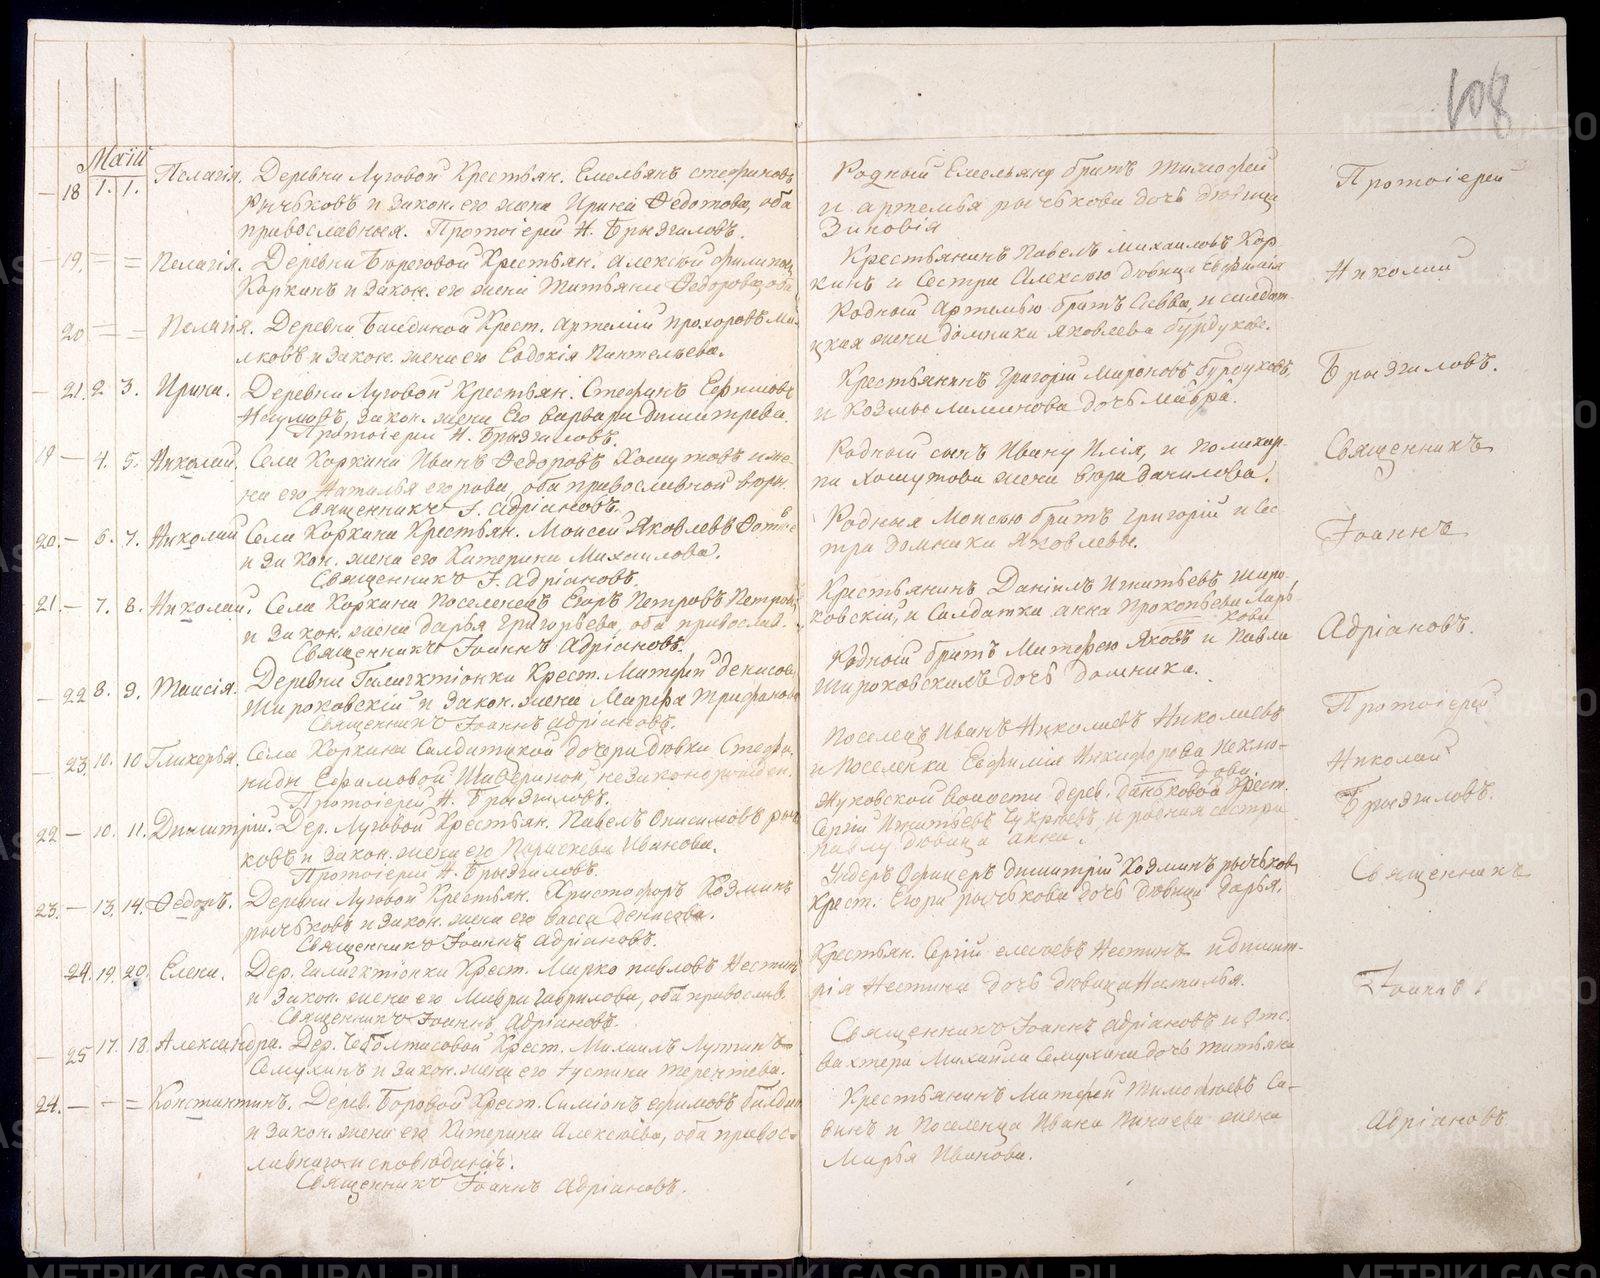 108
Маій
18 1. 1. Пелагія. Деревни Луговой Крестьян. Емельянъ Стефановъ
Рычьковъ и закон. его жена Ирина Ѳедотова, оба
православныя. Протоіерей Н. Брызгаловъ.
19. = = Пелагія. Деревни Береговой Крестьян. Алексей Филипов
Коркинъ и закон. его жена Татьяна Ѳедорова, оба
20 = = Пелагія. Деревни Крест. Артемій Прохоровъ
и закон. жена его Евдокія Пантелѣева.
21. 2 3. Ирина. Деревни Луговой Крестьян. Стефанъ Ефимовъ
Наумовъ, закон. жена его Варвара Дмитрева.
Протоіерей Н. Брызгаловъ.
19 — 4. 5. Николай. Села Коркина Иванъ Ѳедоровъ Хомутовъ и же-
на его Наталья Егорова, оба православной веры.
Священникъ І. Адріановъ.
20. — 6. 7. Николай Села Коркина Крестьян. Моисей Яковлевъ
и закон. жена его Катерина Михаилова.
Священникъ І. Адріановъ.
21. — 7. 8. Николай. Села Коркина Поселенецъ Егоръ Петровъ Петровъ
и закон. жена Дарья Григорьева, оба православ.
Священникъ Іоаннъ Адріановъ.
— 22 8. 9. Таисія. Деревни Крест. Матфей Денисовъ
Широковскій и закон. жена Марфа Трифанова
Священникъ Іоаннъ Адріановъ.
— 23. 10. 10 Гликерья. Села Коркина Салдатской дочери девки Стефа-
ниды Ефимовой незаконорожден.
Протоіерей Н. Брызгаловъ.
22 — 10. 11. Димитрій. Дер. Луговой Крестьян. Павелъ Онисимовъ Рыч
ковъ и закон. жена его Парасковья Иванова.
Протоіерей Н. Брызгаловъ.
23. — 13. 14. Ѳедоръ. Деревни Луговой Крестьян. Христофоръ Козминъ
Рычьковъ и закон. жена его Васса Денисова.
Священникъ Іоаннъ Адріановъ.
24. 19. 20. Елена. Дер. Крест. Марко Павловъ Нестинъ
и закон. жена его Мавра Гаврилова, оба православ.
Священникъ Іоаннъ Адріановъ.
— 25 17. 18. Александра. Дер. Крест. Михаилъ
Семухинъ и закон. жена его Устинья Терентева.
24. — — = Константинъ. Дерев. Боровой Крест. Симіонъ Ефимовъ
и закон. жена его Катерина Алексеева, оба правос-
лавнаго исповеданія.
Священникъ Іоаннъ Адріановъ.
Родный Емельяну братъ Тимофей
и Артемья Рычькова дочь девица
Зиновія
Крестьянинъ Павелъ Михаиловъ Кор
кинъ и сестра Алексею девица Евфимія
Родный Артемью братъ Савва и салдат-
ская жена Домника Яковлева Бурдукова.
Крестьянинъ Григорій Мироновъ Бурдуковъ
и Козмы дочь Мавра.
Родный сынъ Ивану Илія, и Поликар-
па Хомутова жена Данилова.
Родныя Моисею братъ Григорій и сес
тра Домника Яковлевы.
Крестьянинъ Даніилъ Игнатьевъ Широ-
ковскій, и Салдатка Анна Прокопьева
Родный братъ Матфею Яковъ и Павла
Широковскихъ дочь Домника.
Поселецъ Иванъ Николаевъ Николаевъ
и Поселенка Евфимія Никифорова
волости дерев. Крест.
Сергій Игнатьевъ и родная сестра
Павлу девица Анна.
Ундеръ Офицеръ Димитрій Козминъ Рычьковъ,
Крест. Егора Рычькова дочь девица Дарья.
Крестьян. Сергій Нестинъ и Димит-
рія Нестина дочь девица Наталья.
Священникъ Іоаннъ Адріановъ и Отс.
вахтера Михаила Семухина дочь Татьяна
Крестьянинъ Матфей Тимофеевъ Са-
винъ и Поселенца Ивана жена
Марья Иванова.
Протоіерей
Николай
Брызгаловъ.
Священникъ
Іоаннъ
Адріановъ.
Протоіерей
Николай
Брызгаловъ.
Священникъ
Іоаннъ
Адріановъ.
METRIKI.GASO-URAL.RU